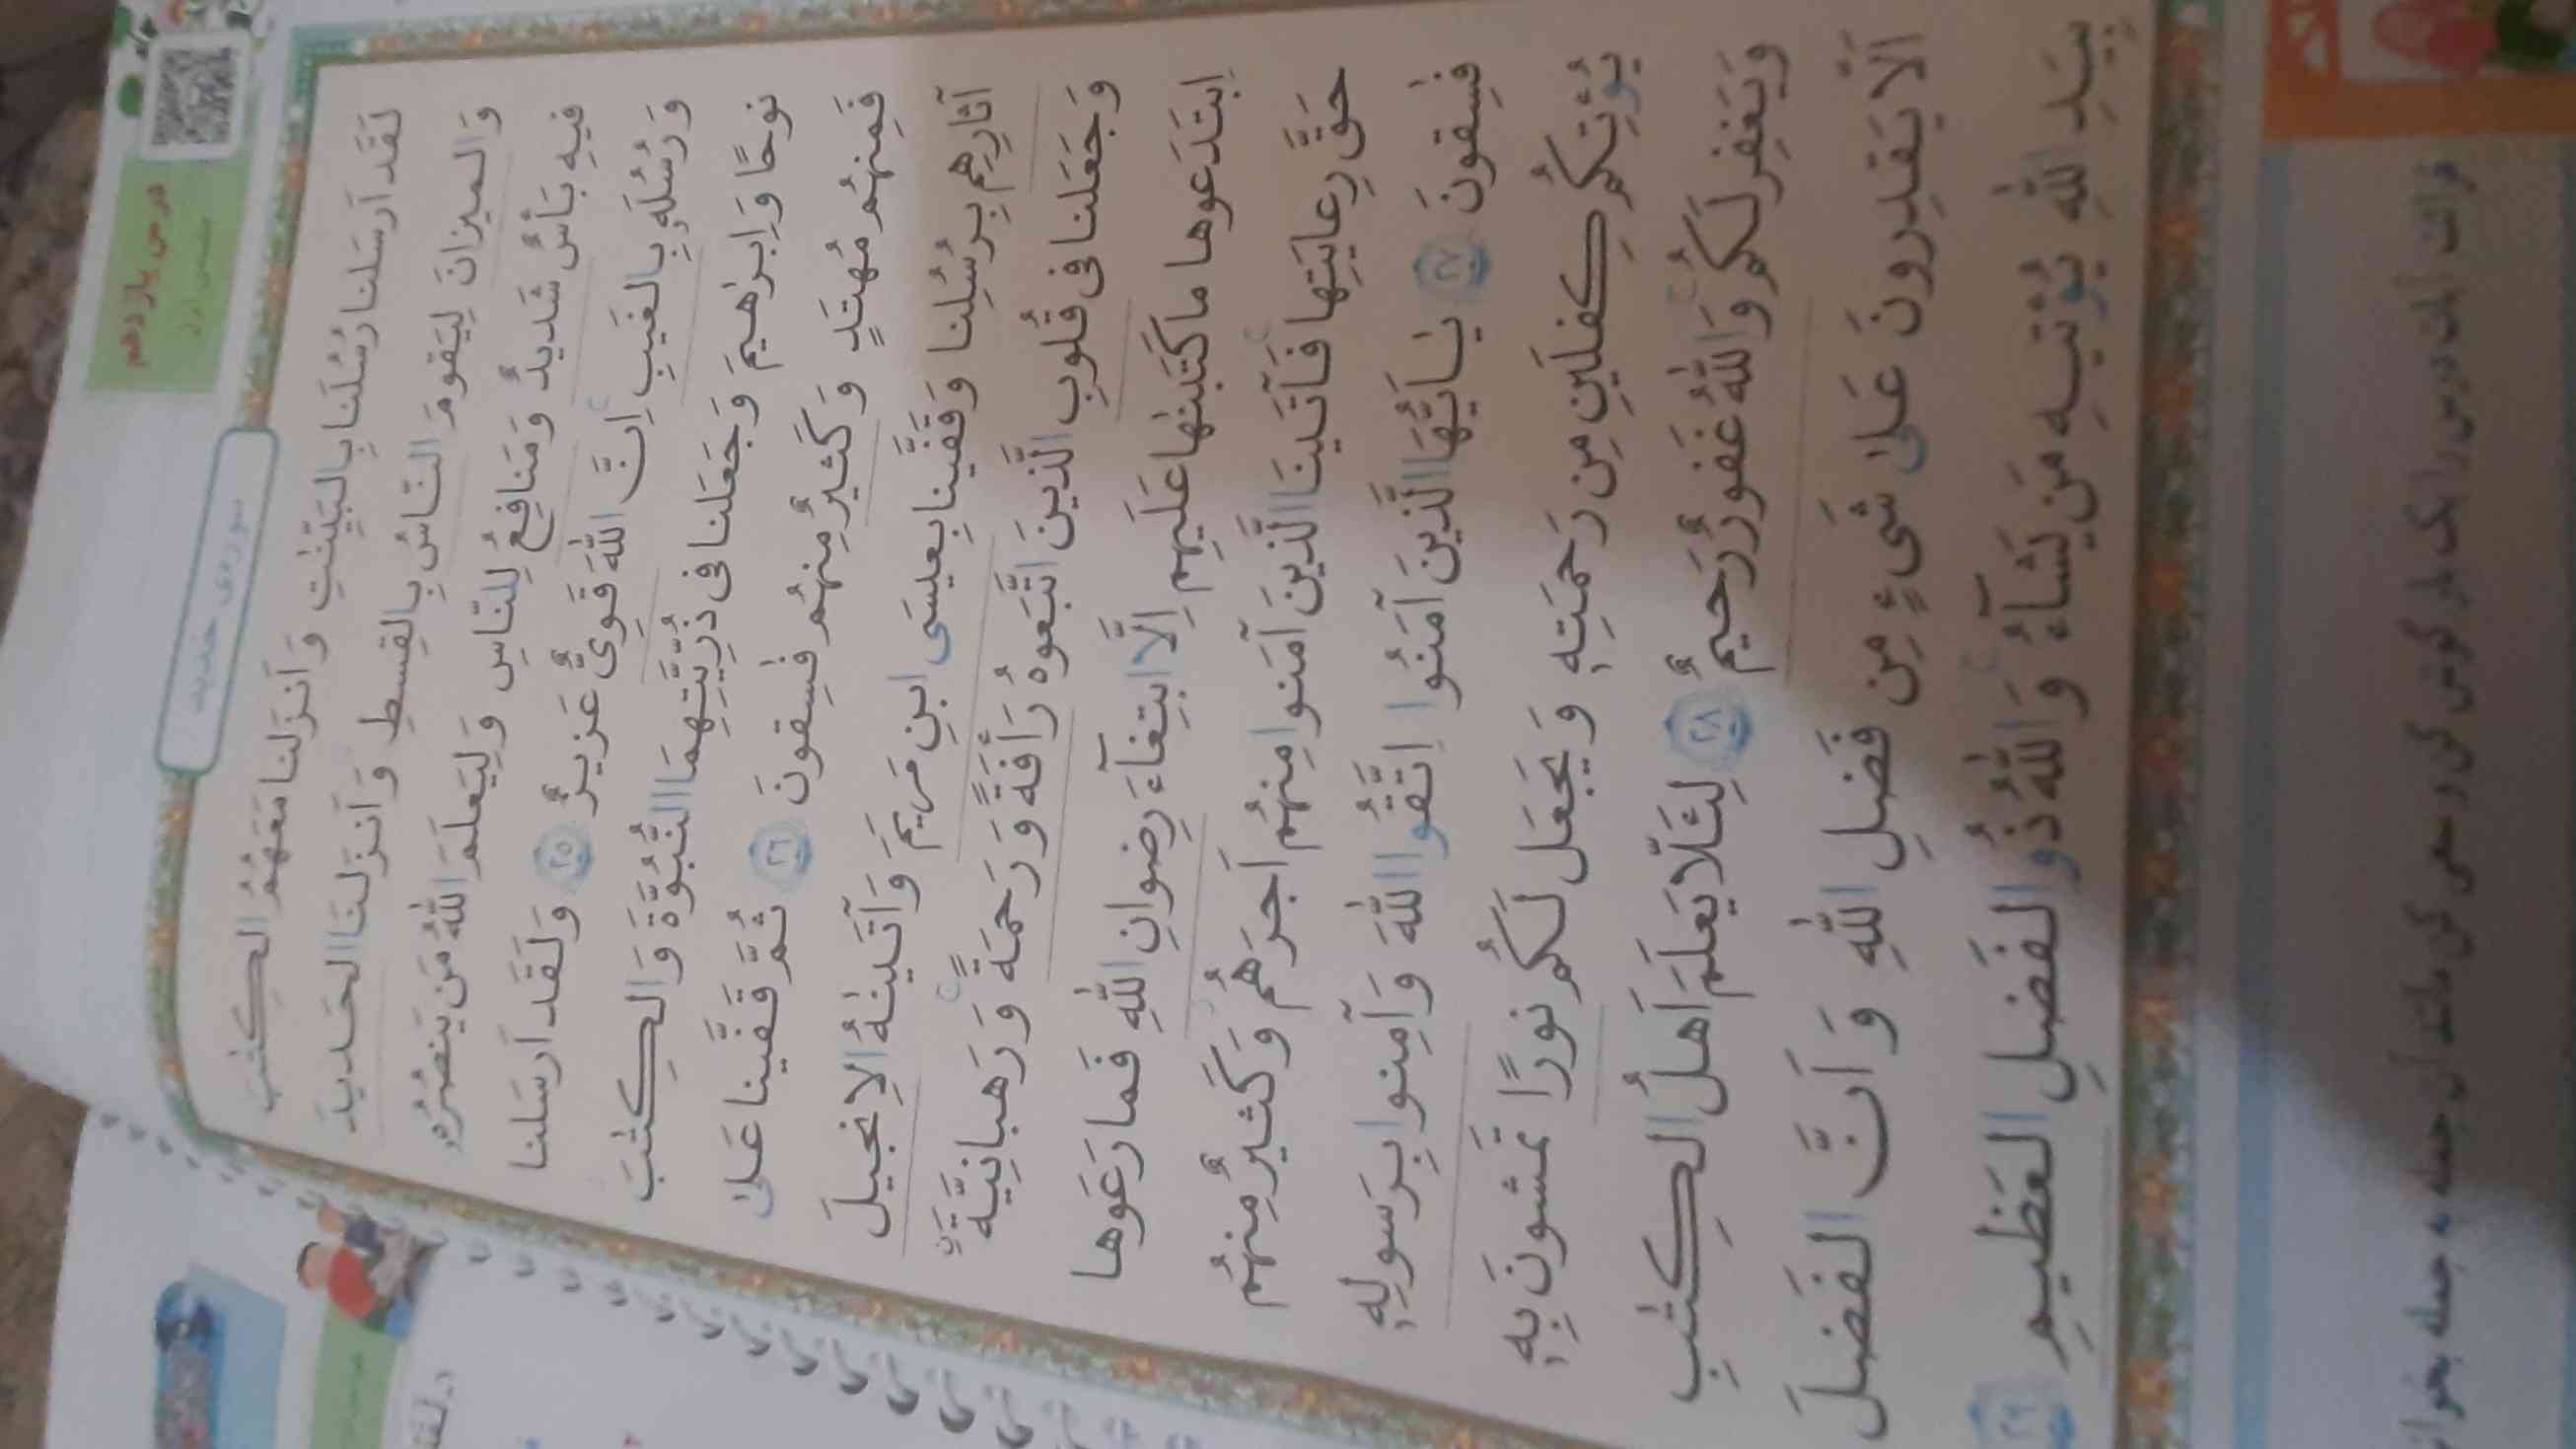 درس یازدهم
سوره‌ی حدید
لَقَد اَرسَلنا رُسُلَنا بِالبَيِّنٰتِ وَ اَنزَلنا مَعَهُمُ الكِتٰبَ
وَ الميزانَ لِيَقومَ النّاسُ بِالقِسطِ وَ اَنزَلنَا الحَديدَ
فيهِ بَأسٌ شَديدٌ وَ مَنافِعُ لِلنّاسِ وَ لِيَعلَمَ اللّٰهُ مَن يَنصُرُهٗ
وَ رُسُلَهٗ بِالغَيبِ اِنَّ اللّٰهَ قَوِىٌّ عَزيزٌ ٢٥ وَ لَقَد اَرسَلنا
نوحًا وَ اِبرٰهيمَ وَ جَعَلنا فى ذُرِّيَّتِهِمَا النُّبُوَّةَ وَ الكِتٰبَ
فَمِنهُم مُهتَدٍ وَ كَثيرٌ مِنهُم فٰسِقونَ ٢٦ ثُمَّ قَفَّينا عَلىٰ
آثارِهِم بِرُسُلِنا وَ قَفَّينا بِعيسَى ابنِ مَريَمَ وَ آتَينٰهُ الاِنجيلَ
وَ جَعَلنا فى قُلوبِ الَّذينَ اتَّبَعوهُ رَأفَةً وَ رَحمَةً وَ رَهبانِيَّةً
اِبتَدَعوها ما كَتَبنٰها عَلَيهِم اِلَّا ابتِغآءَ رِضوانِ اللّٰهِ فَما رَعَوها
حَقَّ رِعايَتِها فَآتَينَا الَّذينَ آمَنوا مِنهُم اَجرَهُم وَ كَثيرٌ مِنهُم
فٰسِقونَ ٢٧ يٰاَيُّهَا الَّذينَ آمَنُوا اتَّقُوا اللّٰهَ وَ آمِنوا بِرَسولِهٖ
يُؤتِكُم كِفلَينِ مِن رَحمَتِهٖ وَ يَجعَل لَكُم نورًا تَمشونَ بِهٖ
وَ يَغفِر لَكُم وَ اللّٰهُ غَفورٌ رَحيمٌ ٢٨ لِئَلّا يَعلَمَ اَهلُ الكِتٰبِ
اَلّا يَقدِرونَ عَلىٰ شَىءٍ مِن فَضلِ اللّٰهِ وَ اَنَّ الفَضلَ
بِيَدِ اللّٰهِ يُؤتيهِ مَن يَشآءُ وَ اللّٰهُ ذُو الفَضلِ العَظيمِ ٢٩